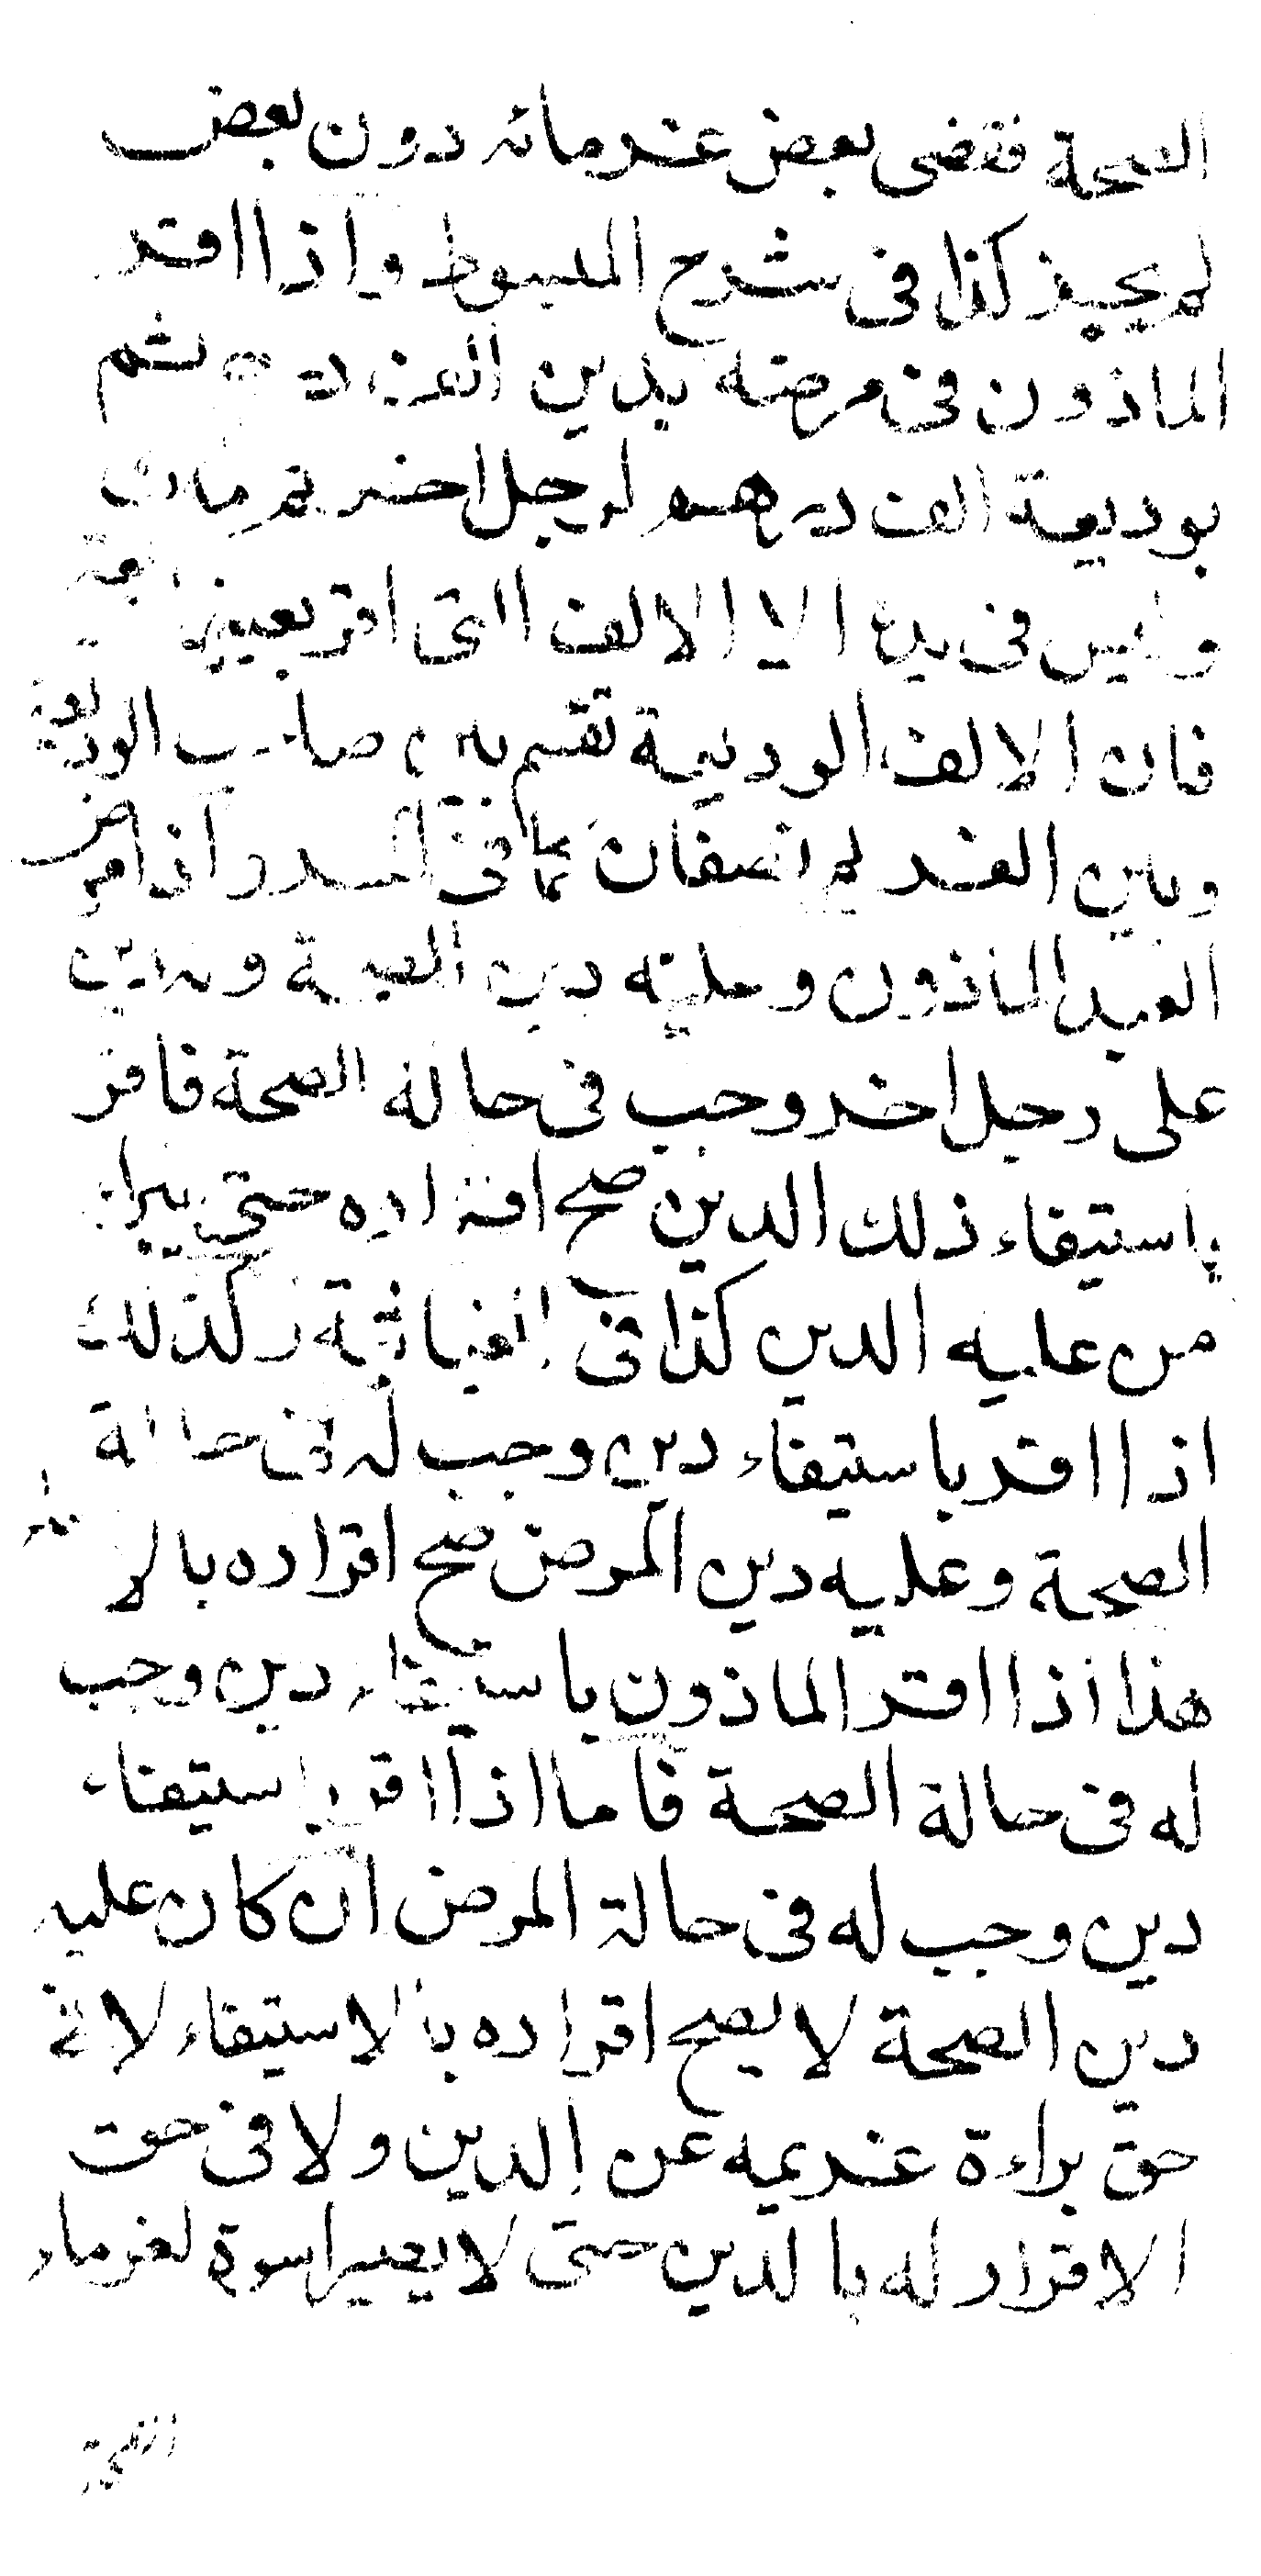 الصحة فقضى بعض غرمائه دون بعض
لم يجز كذا فى شرح المبسوط واذا اقر
الماذون فى مرضه بدين الف درهم ثم
بوديعة الف درهم لرجل اخر ثم مات
وليس فى يده الا الالف التى اقر بعينها
فان الالف الوديعة تقسم بين صاحب الوديعة
وبين الغريم نصفان كما فى الحر واذا مرض
العبد الماذون وعليه دين الصحة وله دين
على رجل اخر وجب فى حالة الصحة فاقر
باستيفاء ذلك الدين صح اقراره حتى يبراء
من عليه الدين كذا فى الغياثية وكذلك
اذا اقر باستيفاء دين وجب له فى حالة
الصحة وعليه دين المرض صح اقراره بالا
هذا اذا اقر الماذون باستيفاء دين وجب
له فى حالة الصحة فاما اذا اقر باستيفاء
دين وجب له فى حالة المرض ان كان عليه
دين الصحة لا يصح اقراره بالاستيفاء لا فى
حق براءة غريمه عن الدين ولا فى حق
الاقرار له بالدين حتى لا يصير اسوة لغرماء
الصحة